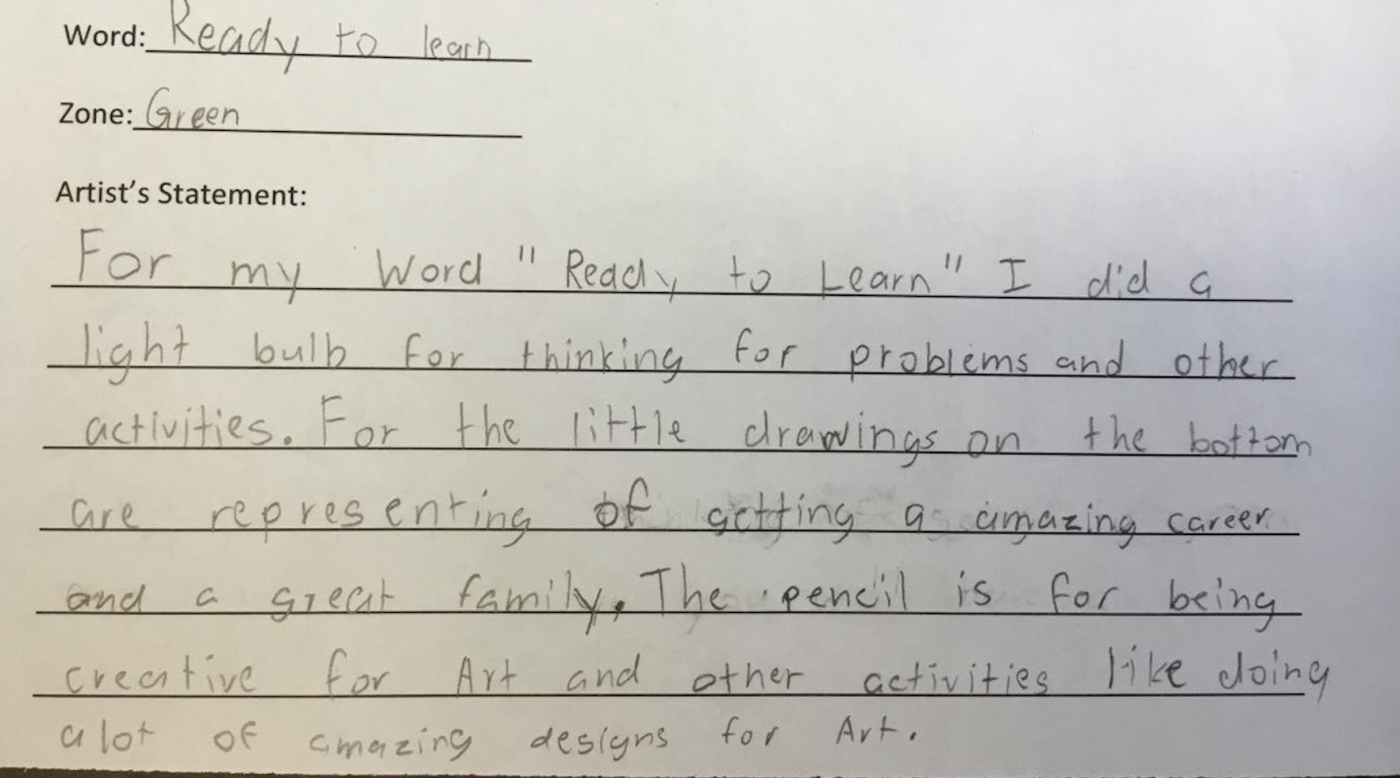 Word: Ready to learn
Zone: Green
Artist's Statement:
For my Word "Ready to Learn" I did a
light bulb for thinking for problems and other
activities. For the little drawings on the bottom
are representing of getting a amazing career
and a great family. The pencil is for being
creative for Art and other activities like doing
a lot of amazing designs for Art.